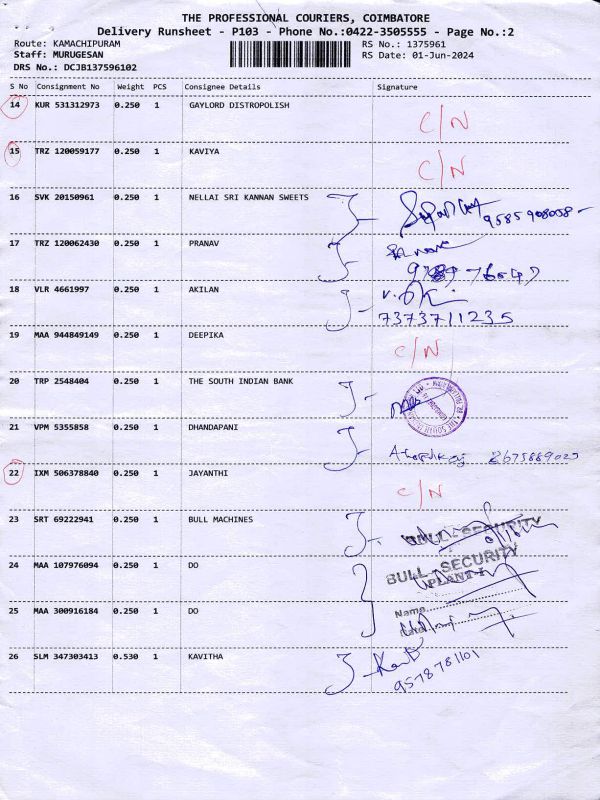 THE PROFESSIONAL COURIERS, COIMBATORE
Delivery Runsheet - P103 - Phone No.:0422-3505555 - Page No.:2
Route: KAMACHIPURAM RS No.: 1375961
Staff: MURUGESAN RS Date: 01-Jun-2024
DRS No.: DCJB137596102
S No Consignment No Weight PCS Consignee Details Signature
14 KUR 531312973 0.250 1 GAYLORD DISTROPOLISH C/N
15 TRZ 120059177 0.250 1 KAVIYA C/N
16 SVK 20150961 0.250 1 NELLAI SRI KANNAN SWEETS
17 TRZ 120062430 0.250 1 PRANAV
18 VLR 4661997 0.250 1 AKILAN
7373711235
19 MAA 944849149 0.250 1 DEEPIKA C/N
20 TRP 2548404 0.250 1 THE SOUTH INDIAN BANK
21 VPM 5355858 0.250 1 DHANDAPANI
22 IXM 506378840 0.250 1 JAYANTHI C/N
23 SRT 69222941 0.250 1 BULL MACHINES BULL SECURITY
24 MAA 107976094 0.250 1 DO BULL - SECURITY
PLANT-I
25 MAA 300916184 0.250 1 DO Name
Date
26 SLM 347303413 0.530 1 KAVITHA
9578781101